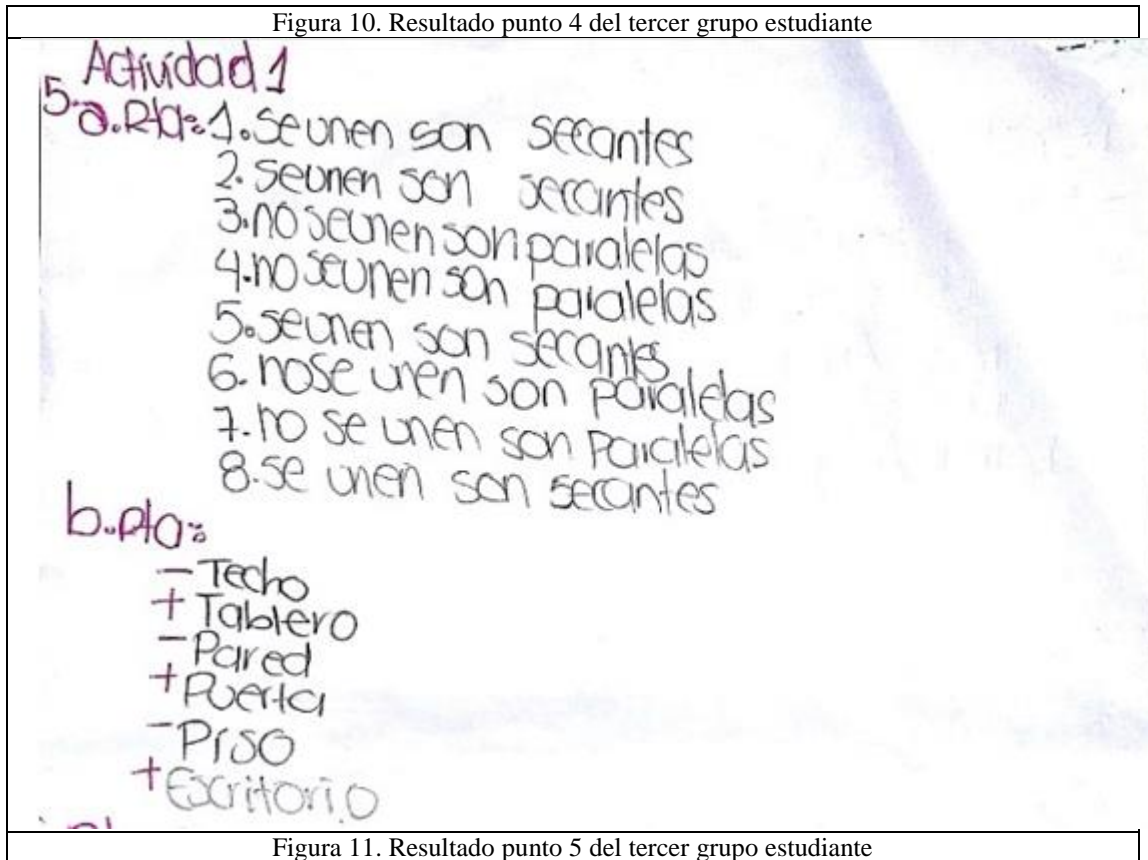 Figura 10. Resultado punto 4 del tercer grupo estudiante
Actividad 1
5. a. Rta: 1. se unen son secantes
2. se unen son secantes
3. no se unen son paralelas
4. no se unen son paralelas
5. se unen son secantes
6. no se unen son paralelas
7. no se unen son paralelas
8. se unen son secantes
b. Rta:
- Techo
+ Tablero
- Pared
+ Puerta
- Piso
+ Escritorio
Figura 11. Resultado punto 5 del tercer grupo estudiante